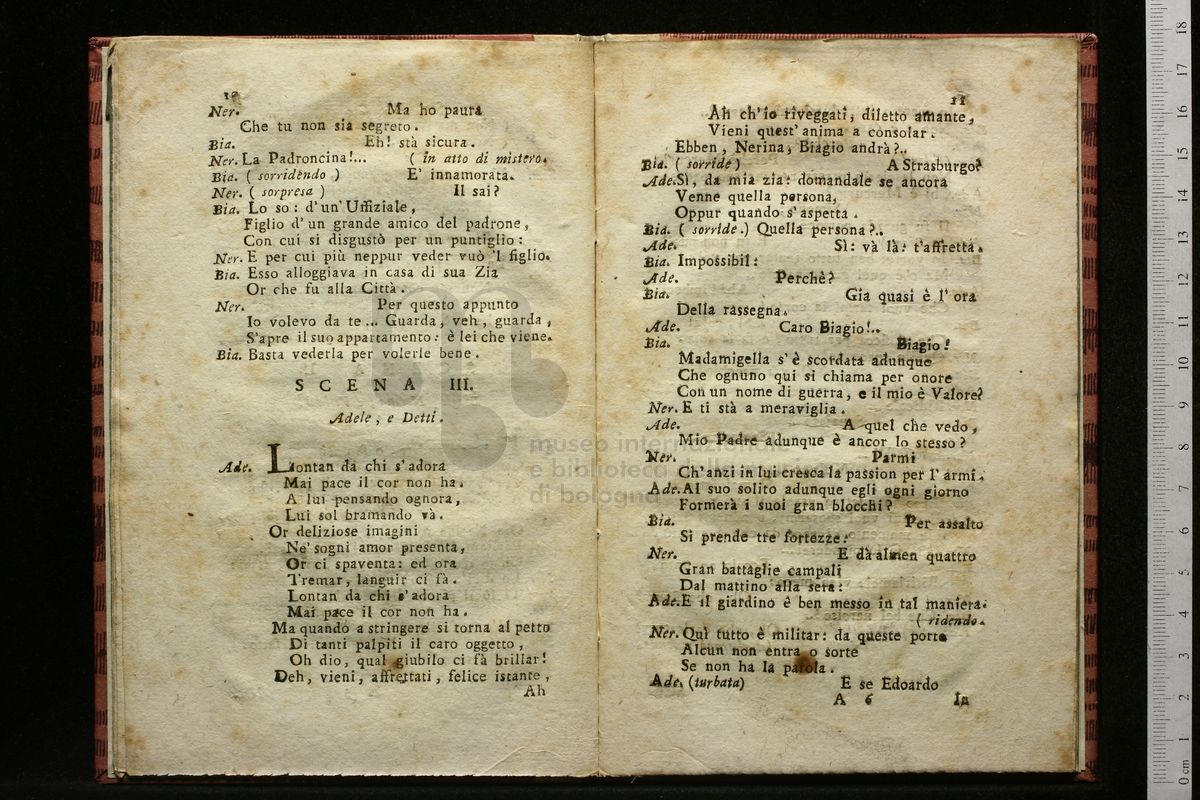 10
Ner. Ma ho paura
Che tu non sia segreto.
Bia. Eh! stà sicura.
Ner. La Padroncina!... ( in atto di mistero.
Bia. ( sorridendo ) E' innamorata.
Ner. ( sorpresa ) Il sai?
Bia. Lo so: d'un'Uffiziale,
Figlio d'un grande amico del padrone,
Con cui si disgustò per un puntiglio:
Ner. E per cui più neppur veder vuò 'l figlio.
Bia. Esso alloggiava in casa di sua Zia
Or che fu alla Città.
Ner. Per questo appunto
Io volevo da te... Guarda, veh, guarda,
S'apre il suo appartamento: è lei che viene.
Bia. Basta vederla per volerle bene.
SCENA III.
Adele, e Detti.
Ade. Lontan da chi s'adora
Mai pace il cor non ha.
A lui pensando ognora,
Lui sol bramando và.
Or deliziose imagini
Ne' sogni amor presenta,
Or ci spaventa: ed ora
Tremar, languir ci fà.
Lontan da chi s'adora
Mai pace il cor non ha.
Ma quando a stringere si torna al petto
Di tanti palpiti il caro oggetto,
Oh dio, qual giubilo ci fà brillar!
Deh, vieni, affrettati, felice istante,
Ah
11
Ah ch'io riveggati, diletto amante,
Vieni quest'anima a consolar.
Ebben, Nerina, Biagio andrà?..
Bia. ( sorride ) A Strasburgo?
Ade. Sì, da mia zia: domandale se ancora
Venne quella persona,
Oppur quando s'aspetta.
Bia. ( sorride.) Quella persona?..
Ade. Sì: và là: t'affretta.
Bia. Impossibil:
Ade. Perchè?
Bia. Già quasi è l'ora
Della rassegna.
Ade. Caro Biagio!..
Bia. Biagio!
Madamigella s'è scordata adunque
Che ognuno qui si chiama per onore
Con un nome di guerra, e il mio è Valore?
Ner. E ti stà a meraviglia.
Ade. A quel che vedo,
Mio Padre adunque è ancor lo stesso?
Ner. Parmi
Ch'anzi in lui cresca la passion per l'armi.
Ade. Al suo solito adunque egli ogni giorno
Formerà i suoi gran blocchi?
Bia. Per assalto
Si prende tre fortezze:
Ner. E dà almen quattro
Gran battaglie campali
Dal mattino alla sera:
Ade. E il giardino è ben messo in tal maniera.
( ridendo.
Ner. Quì tutto è militar: da queste porte
Alcun non entra o sorte
Se non ha la parola.
Ade. (turbata) E se Edoardo
A 6 In
museo internazionale
e biblioteca della musica
di bologna
18
17
16
15
14
13
12
11
10
9
8
7
6
5
4
3
2
1
0 cm